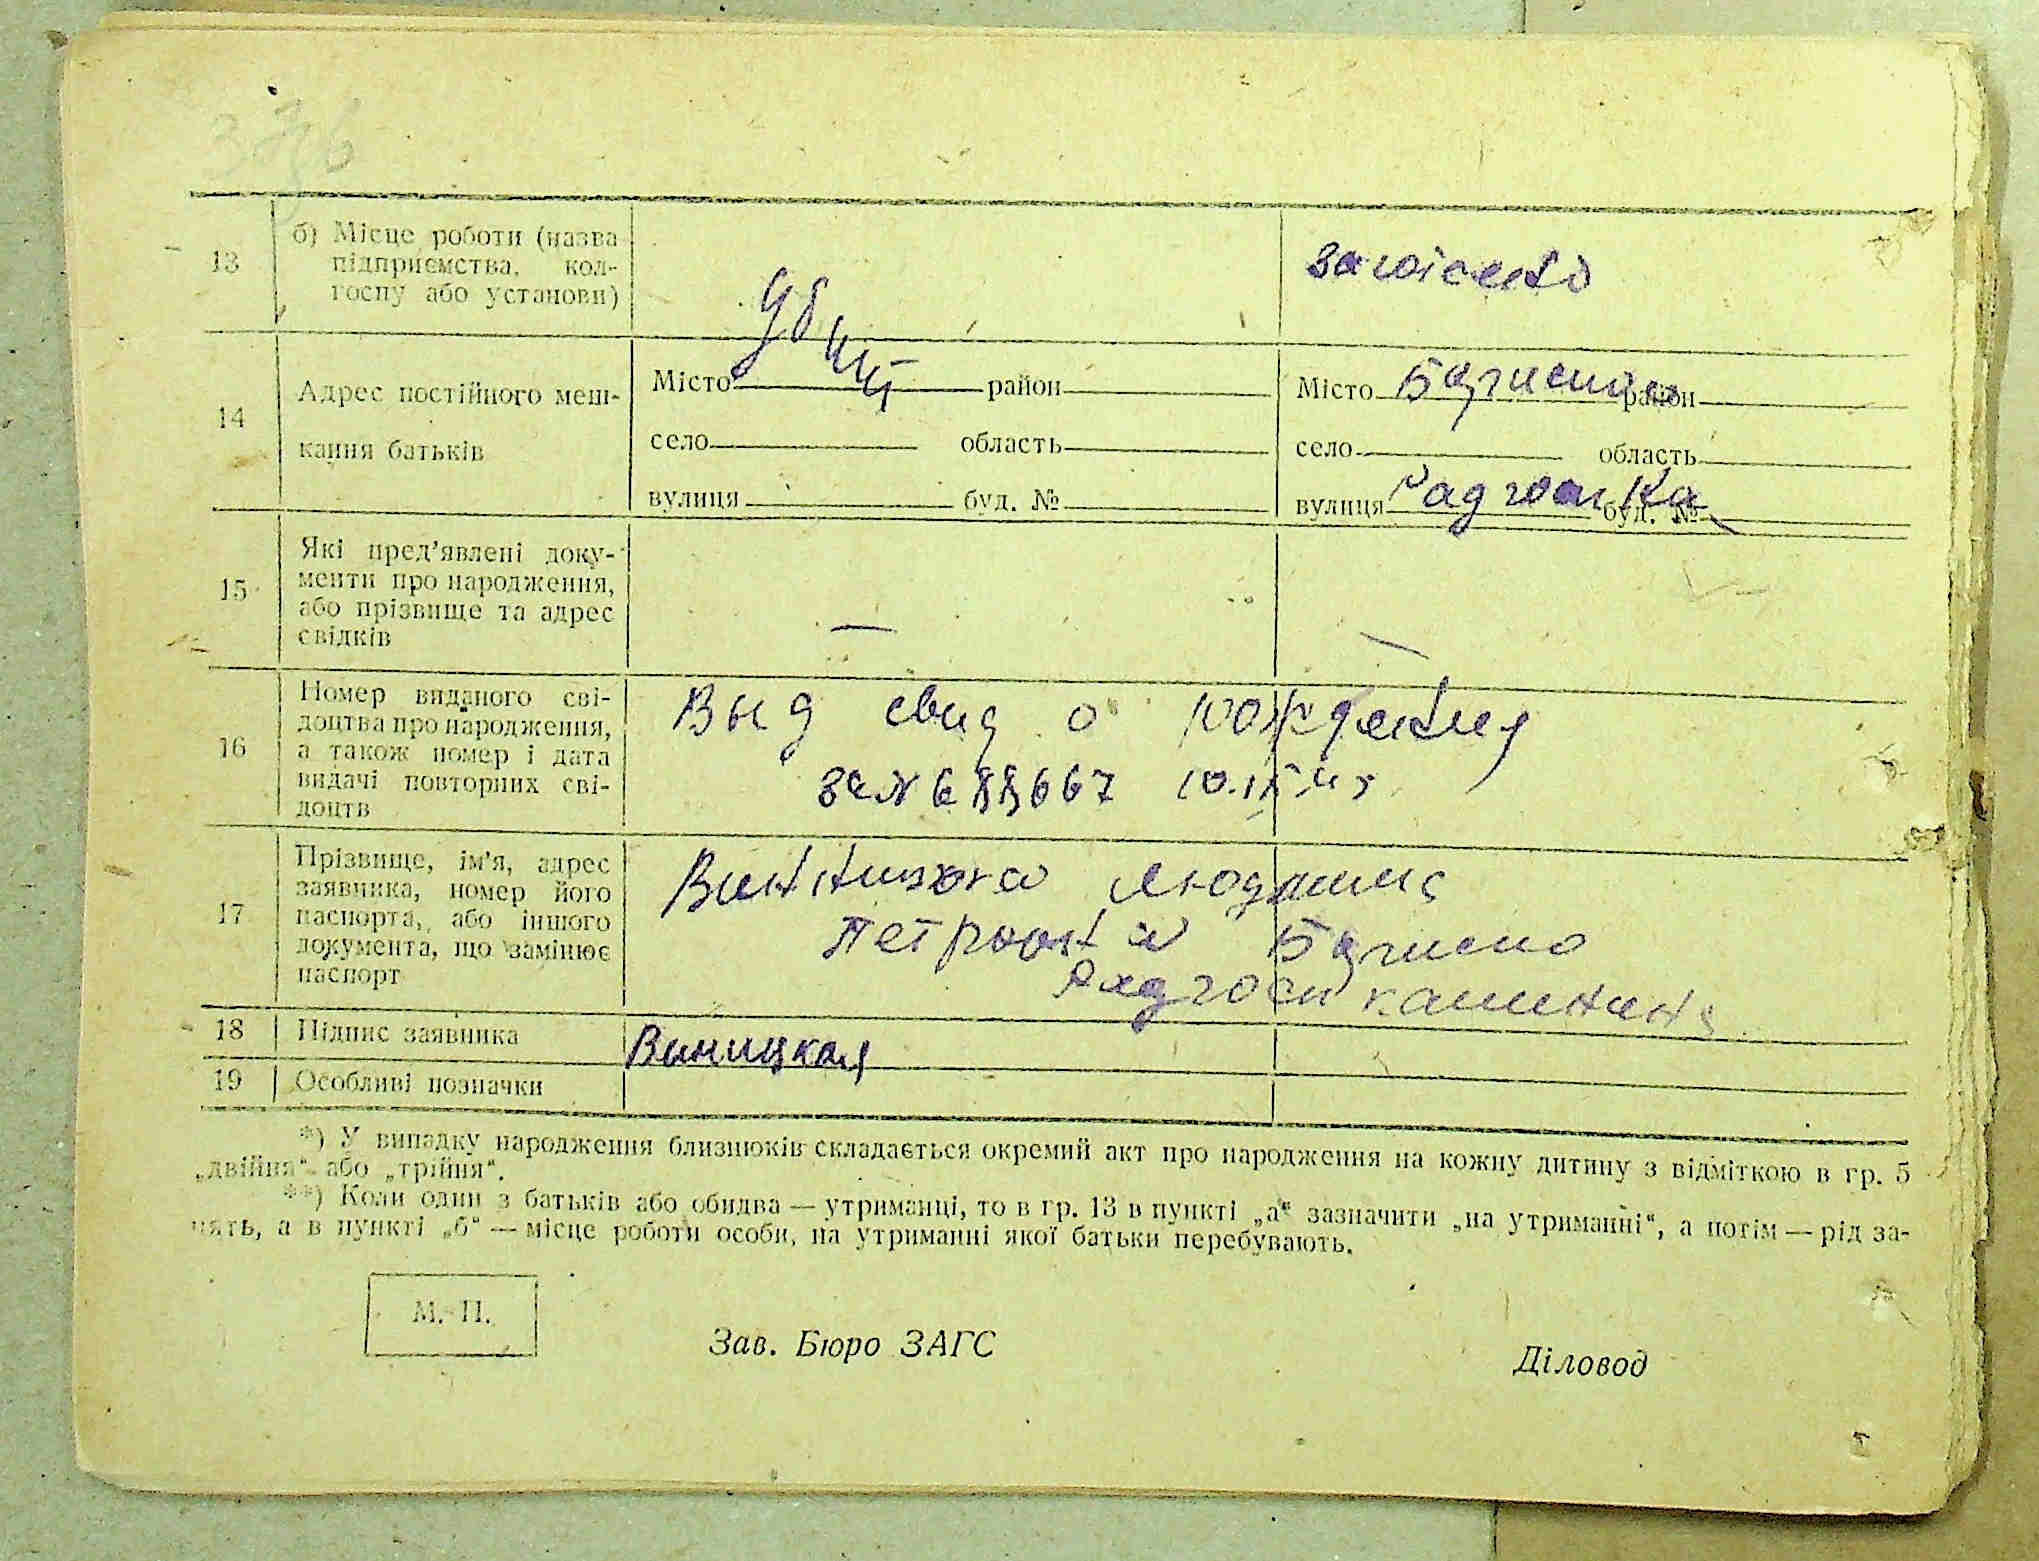 13
б) Місце роботи (назва
підприємства, кол-
госпу або установи)
14
Адрес постійного меш-
кання батьків
Місто район
село область
вулиця буд. №
Місто район
село область
вулиця буд. №
15
Які пред’явлені доку-
менти про народження,
або прізвище та адрес
свідків
—
—
16
Номер виданого сві-
доцтва про народження,
а також номер і дата
видачі повторних сві-
доцтв
Выд свид о рождения
за №
17
Прізвище, ім’я, адрес
заявника, номер його
паспорта, або іншого
документа, що замінює
паспорт
Людмила
Петровна
18
Підпис заявника
Виницкая
19
Особливі позначки
*) У випадку народження близнюків складається окремий акт про народження на кожну дитину з відміткою в гр. 5
„двійня“ або „трійня“.
**) Коли один з батьків або обидва — утриманці, то в гр. 13 в пункті „а“ зазначити „на утриманні“, а потім — рід за-
нять, а в пункті „б“ — місце роботи особи, на утриманні якої батьки перебувають.
М. П.
Зав. Бюро ЗАГС
Діловод